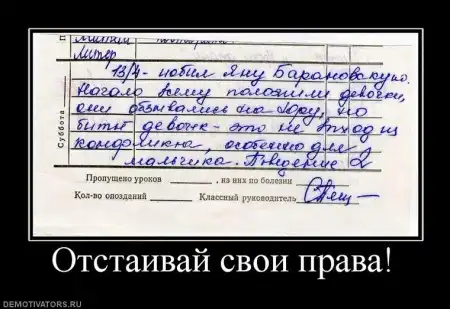 Литер
13/4 - побил Яну Барановскую.
Начало всему положили девочки,
они обзывались на Юру, но
битьё девочек - это не выход из
конфликта, особенно для
мальчика. Поведение 2
Суббота
Пропущено уроков ________, из них по болезни ________
Кол-во опозданий ________ Классный руководитель
Отстаивай свои права!
DEMOTIVATORS.RU